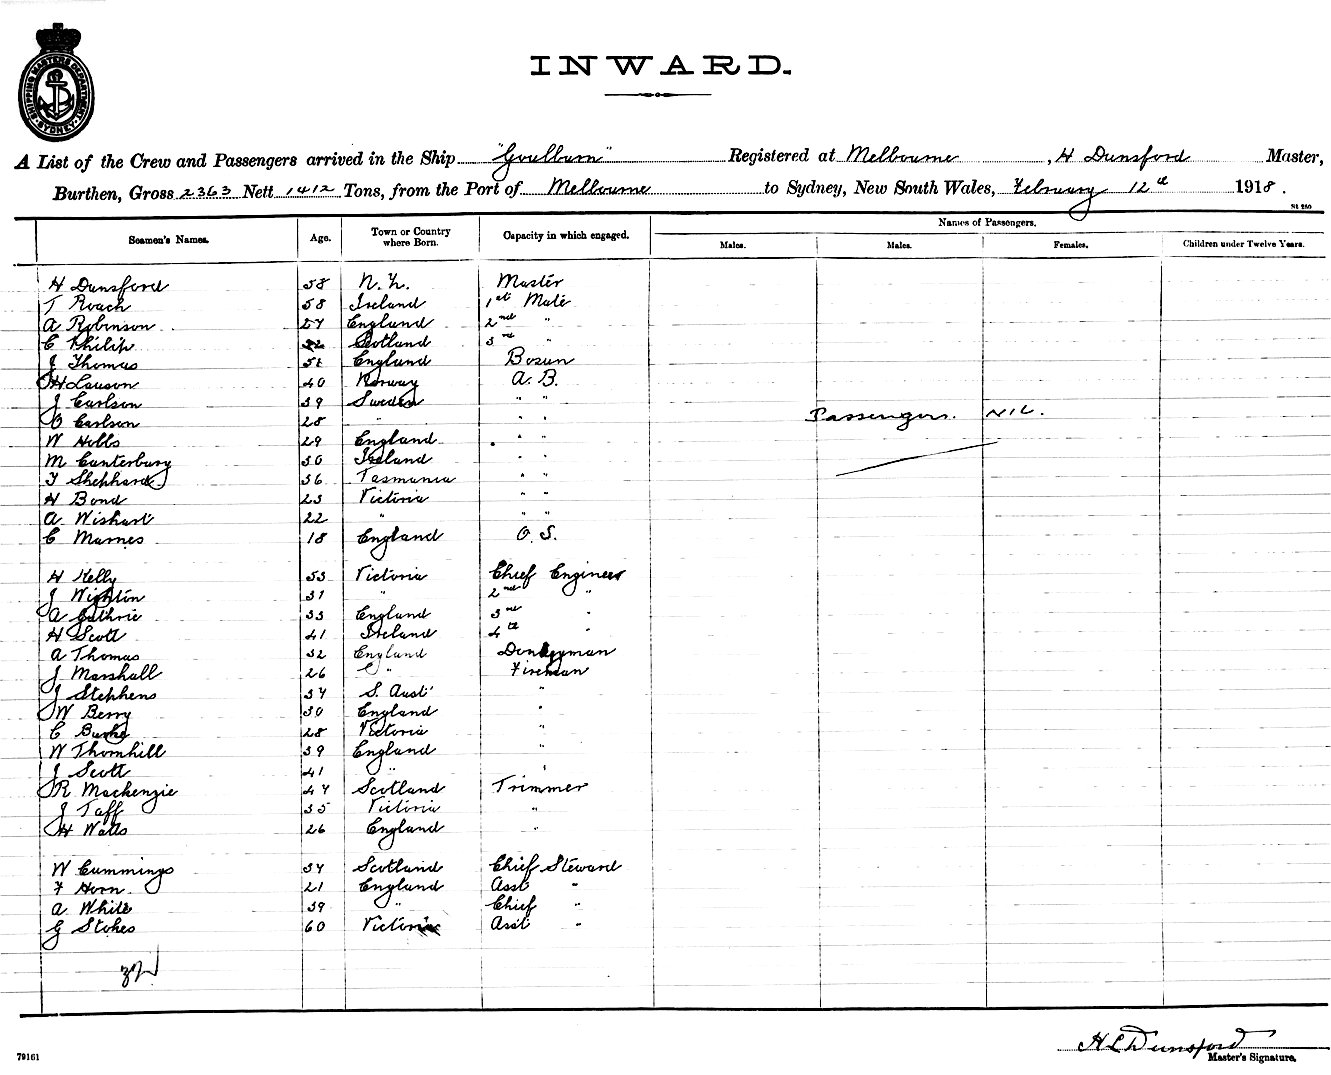 SHIPPING MASTER'S DEPARTMENT SYDNEY
INWARD.
A List of the Crew and Passengers arrived in the Ship "Goulburn" Registered at Melbourne, H Dunsford Master,
Burthen, Gross 2363 Nett 1412 Tons, from the Port of Melbourne to Sydney, New South Wales, February 12th 1918.
St 250
Seamen's Names. Age. Town or Country where Born. Capacity in which engaged. Names of Passengers.
Males. Males. Females. Children under Twelve Years.
H Dunsford 58 N. Z. Master
T Roach 58 Ireland 1st Mate
A Robinson 27 England 2nd "
C Philip Scotland 3rd "
J Thomas 51 England Bosun
H Lauson 40 Norway A. B.
J Carlson 39 Sweden " "
O Carlson 28 " " "
Passengers. NIL.
W Hobbs 29 England " "
M Canterbury 30 Ireland " "
T Shephard 36 Tasmania " "
H Bond 23 Victoria " "
A. Wishart 22 " " "
C Marnes 18 England O. S.
H Kelly 53 Victoria Chief Engineer
J Wighton 31 " 2nd "
A Guthrie 33 England 3rd "
H Scott 41 Ireland 4th "
A Thomas 32 England Donkeyman
J Marshall 26 " Fireman
J Stephens 37 S. Aust "
W Berry 30 England "
C Burke 28 Victoria "
W Thornhill 39 England "
J Scott 41 " "
R Mackenzie 47 Scotland Trimmer
J Taff 35 Victoria "
H Watts 26 England "
W Cummings 37 Scotland Chief Steward
F Horn. 21 England Asst "
A. White 39 " Chief "
G Stokes 60 Victoria Asst "
32
H L Dunsford
Master's Signature.
79161